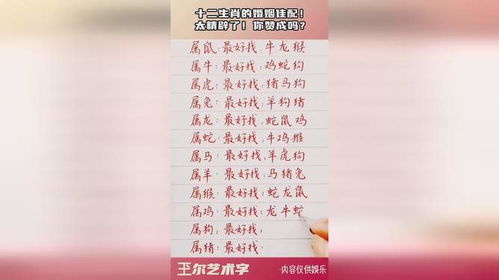 十二生肖的婚姻佳配！
太精辟了！你赞成吗？
属鼠：最好找：牛龙猴
属牛：最好找：鸡蛇狗
属虎：最好找：猪马狗
属兔：最好找：羊狗猪
属龙：最好找：蛇鼠鸡
属蛇：最好找：牛鸡猴
属马：最好找：羊虎狗
属羊：最好找：马猪兔
属猴：最好找：蛇龙鼠
属鸡：最好找：龙牛蛇
属狗：最好找：
属猪：最好找：
王尔艺术字
·内容仅供娱乐